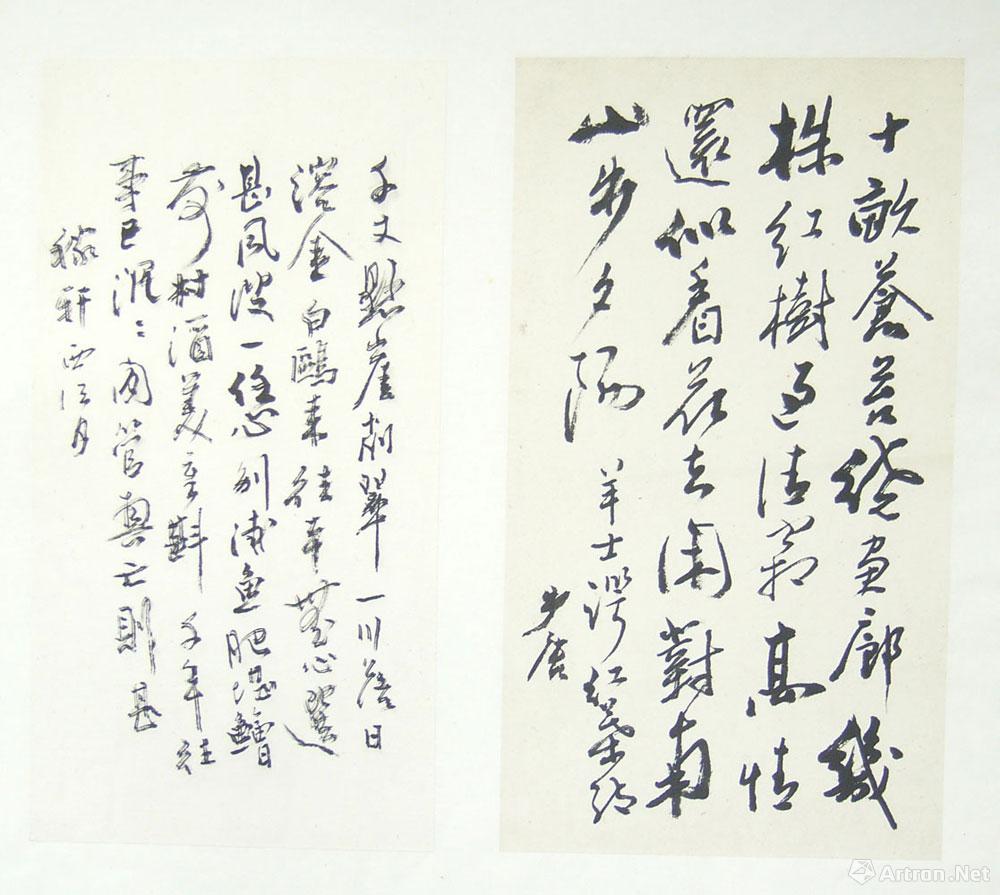 十畝蒼苔繞画廊幾
株紅樹過清霜高情
還似看花去閑對南
山步夕陽
羊士諤紅葉詩
千丈懸崖削翠一川落日
溶金白鷗来往本無心選
甚風波一任別浦魚肥堪鱠
前村酒美重斟千年往
事已沉〻閑管興亡則甚
稼軒西江月
Artron.Net